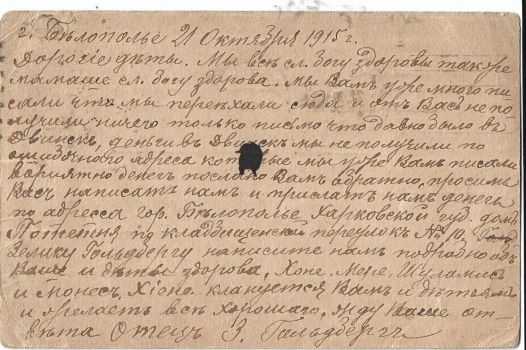 г. Бѣлополье 21 Октября 1915 г.
Дорогіе дѣти. Мы всѣ сл. Богу здоровы также
мамаше сл. Богу здорова. мы Вамъ уже много пи
сали что мы переехали сюда и отъ Васъ не по
лучили ничего только писмо что давно было въ
Двинскъ, деньги въ Двинскъ мы не получили по
ошибочного адреса которые мы уже Вамъ писали
вариятно денег послано Вамъ обратно, просимъ
Васъ написать намъ и прислать намъ денегъ
по адресса гор. Бѣлополье Харковской губ. домъ
по кладбищенскій переулокъ № 10.
Зелику Гольдбергу напишите намъ подробно объ
Ваше и дѣтье здорова, Хоне. Мере, Шуламис
и Монес, Хіоне клануется Вамъ и дѣтьямъ
и желаетъ всѣ хорошаго, жду Ваше от-
вѣта Отецъ З. Гольдбергъ